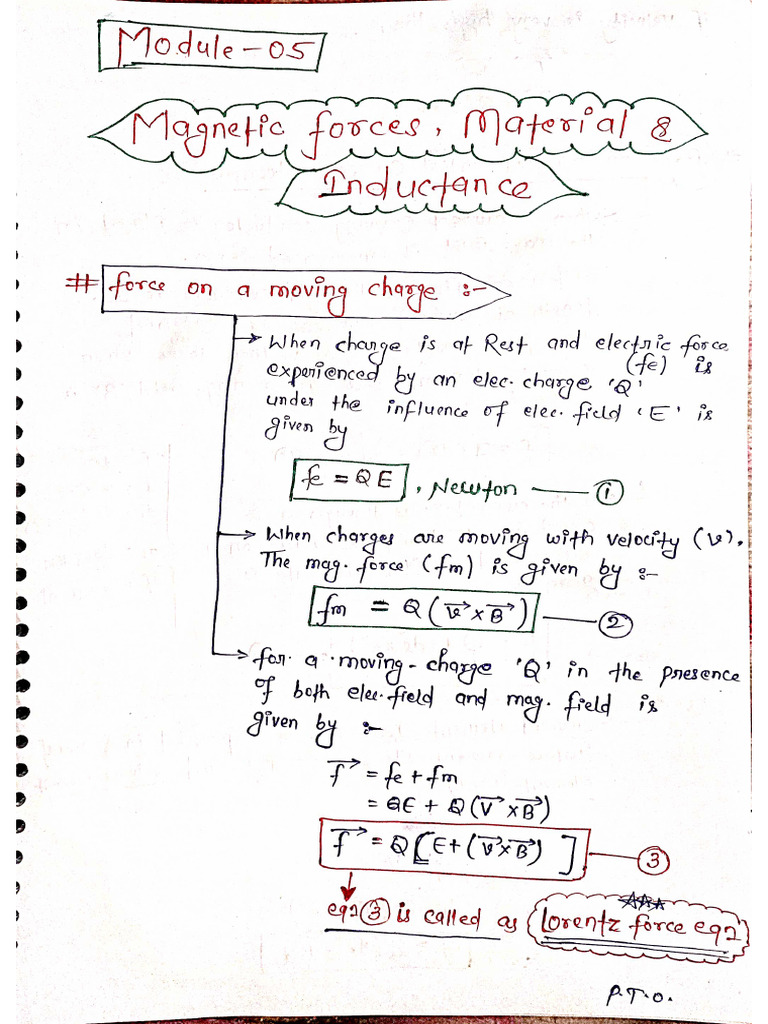 Module-05
Magnetic forces, Material &
Inductance
# force on a moving charge :-
→ When charge is at Rest and electric force
(fe) is
experienced by an elec. charge 'Q'
under the influence of elec. field 'E' is
given by
fe = QE , Newton — ①
→ When charges are moving with velocity (v).
The mag. force (fm) is given by :-
fm = Q (v⃗ × B⃗) — ②
→ for a moving-charge 'Q' in the presence
of both elec. field and mag. field is
given by :-
f⃗ = fe + fm
= QE + Q (V⃗ × B⃗)
f⃗ = Q [E + (v⃗ × B⃗)] — ③
eqn ③ is called as Lorentz force eqn
P.T.O.